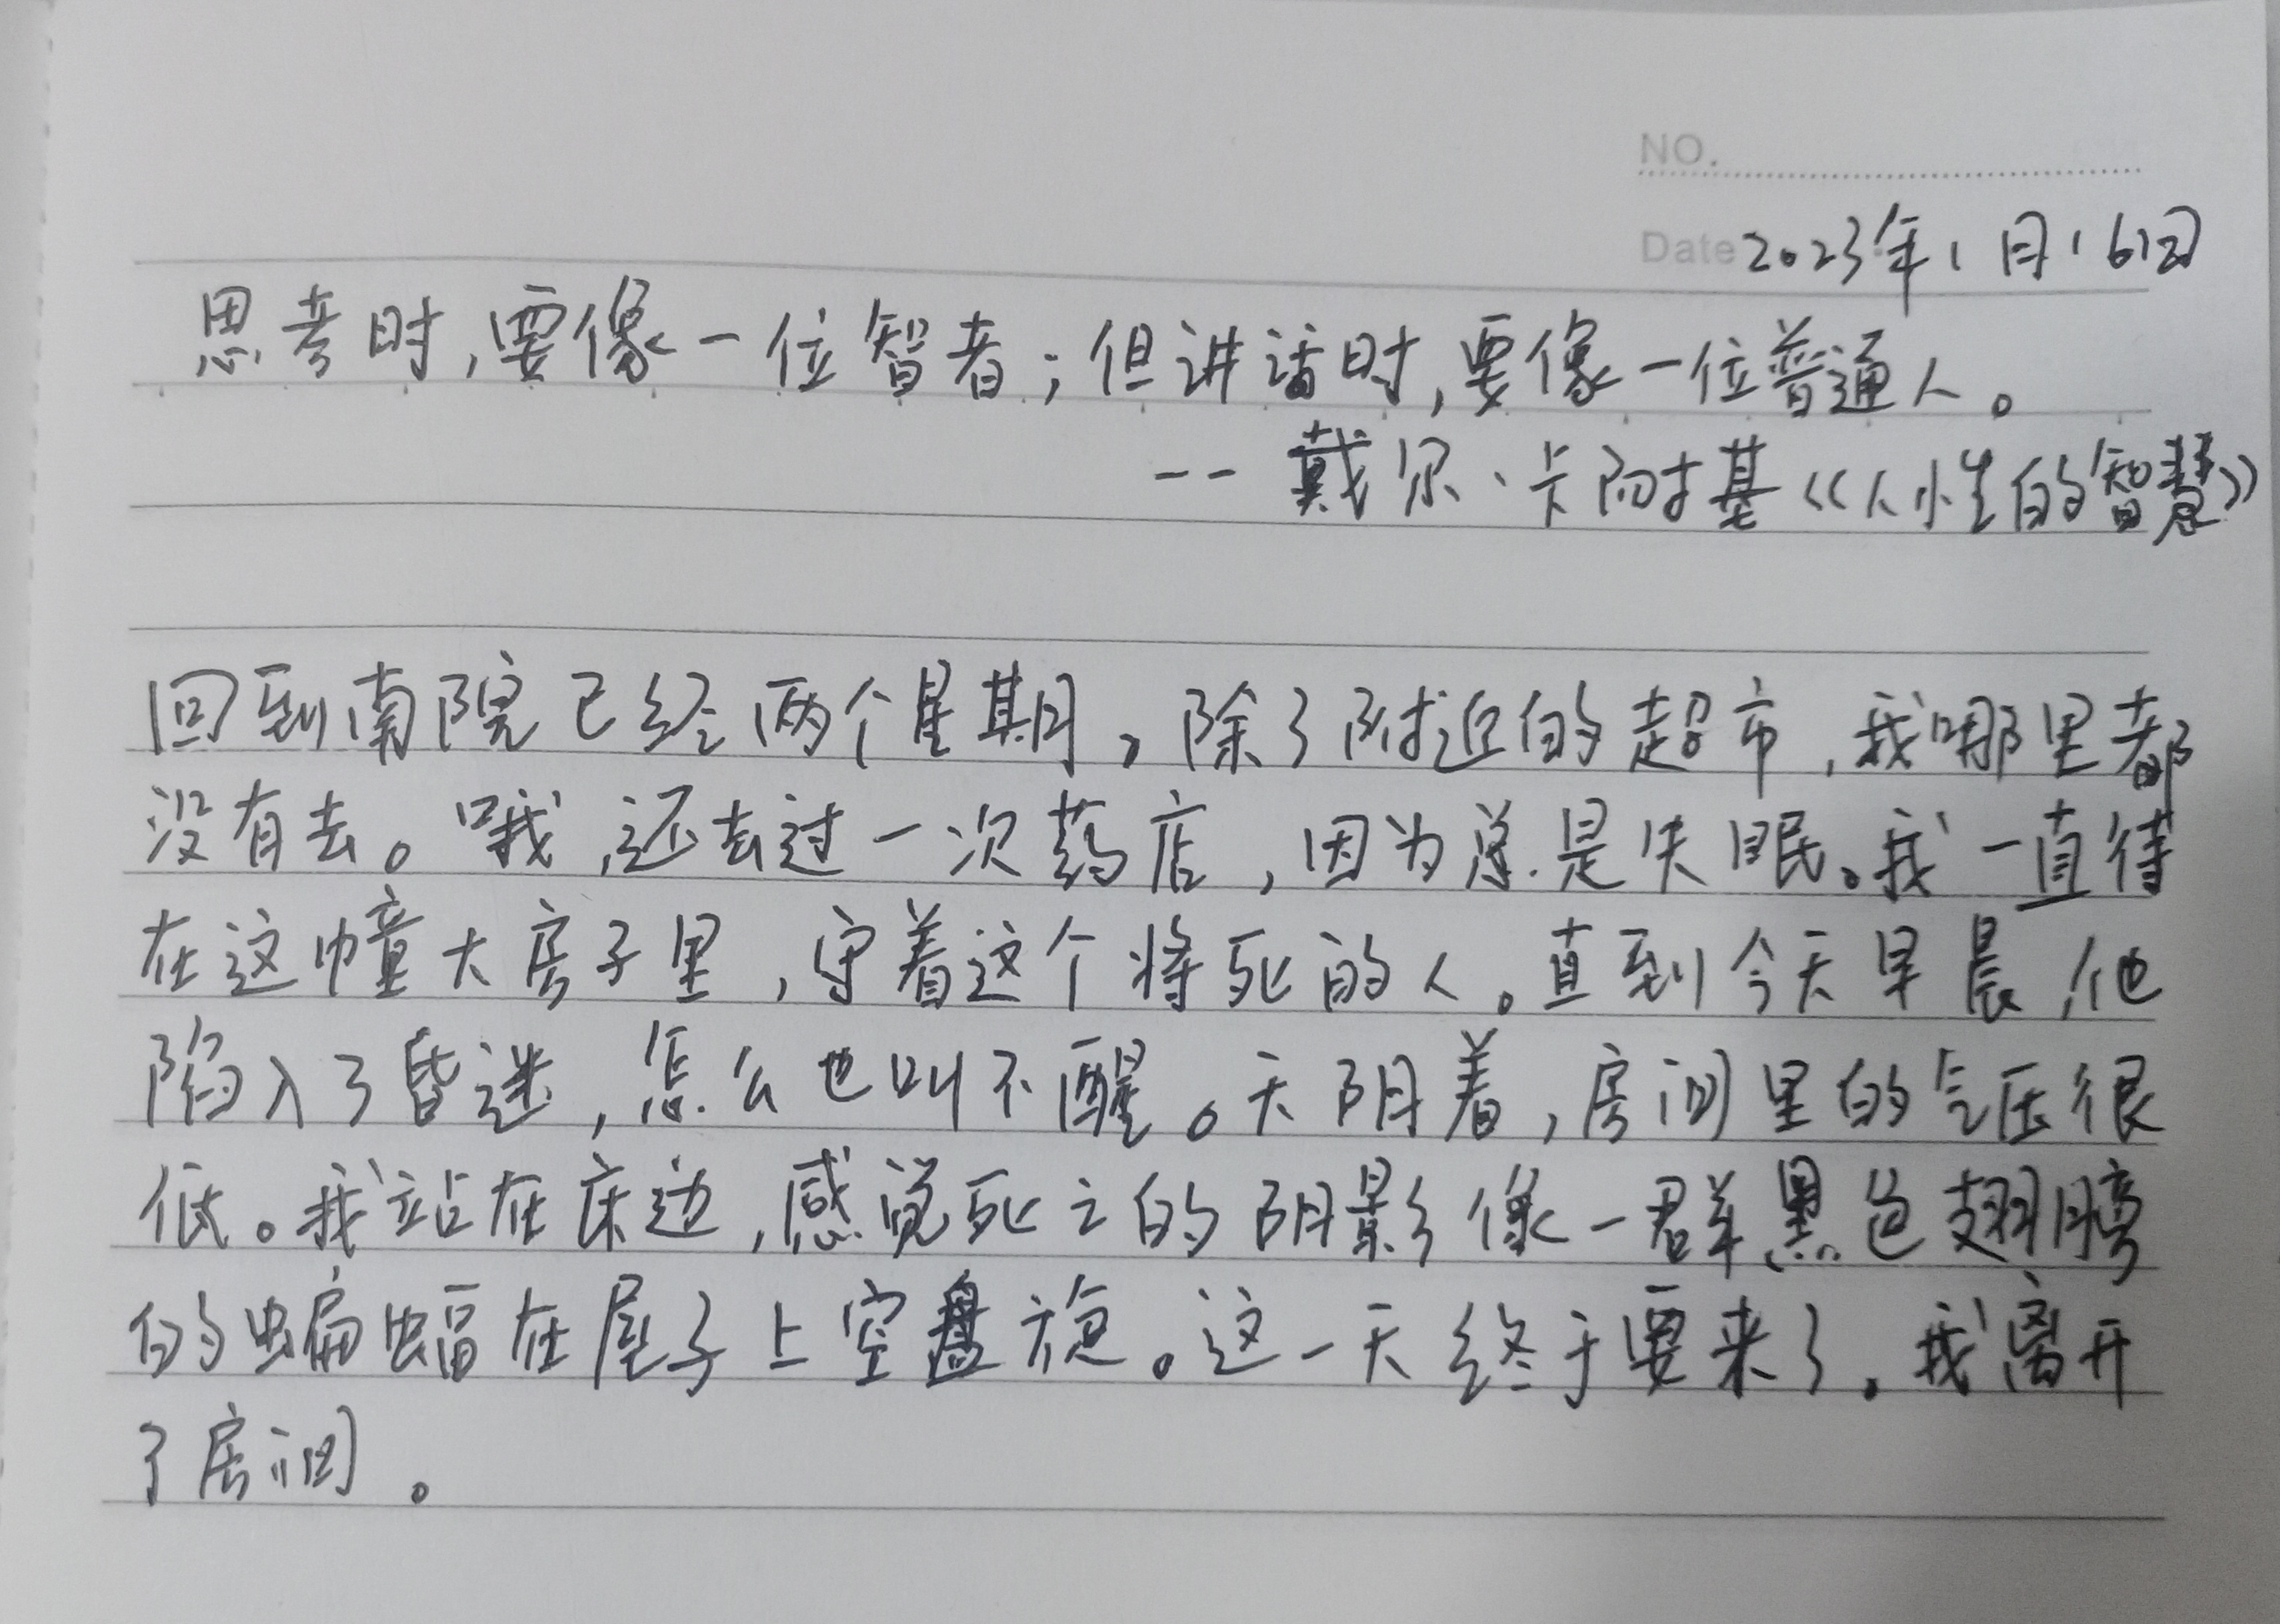 NO.
Date 2023年1月16日
思考时,要像一位智者;但讲话时,要像一位普通人。
--戴尔、卡耐基《人性的智慧》
回到南院已经两个星期。除了附近的超市,我哪里都
没有去。哦,还去过一次药店,因为总是失眠。我一直待
在这幢大房子里,守着这个将死的人。直到今天早晨,他
陷入了昏迷,怎么也叫不醒。天阴着,房间里的气压很
低。我站在床边,感觉死亡的阴影像一群黑色翅膀
的蝙蝠在屋子上空盘旋。这一天终于要来了。我离开
了房间。